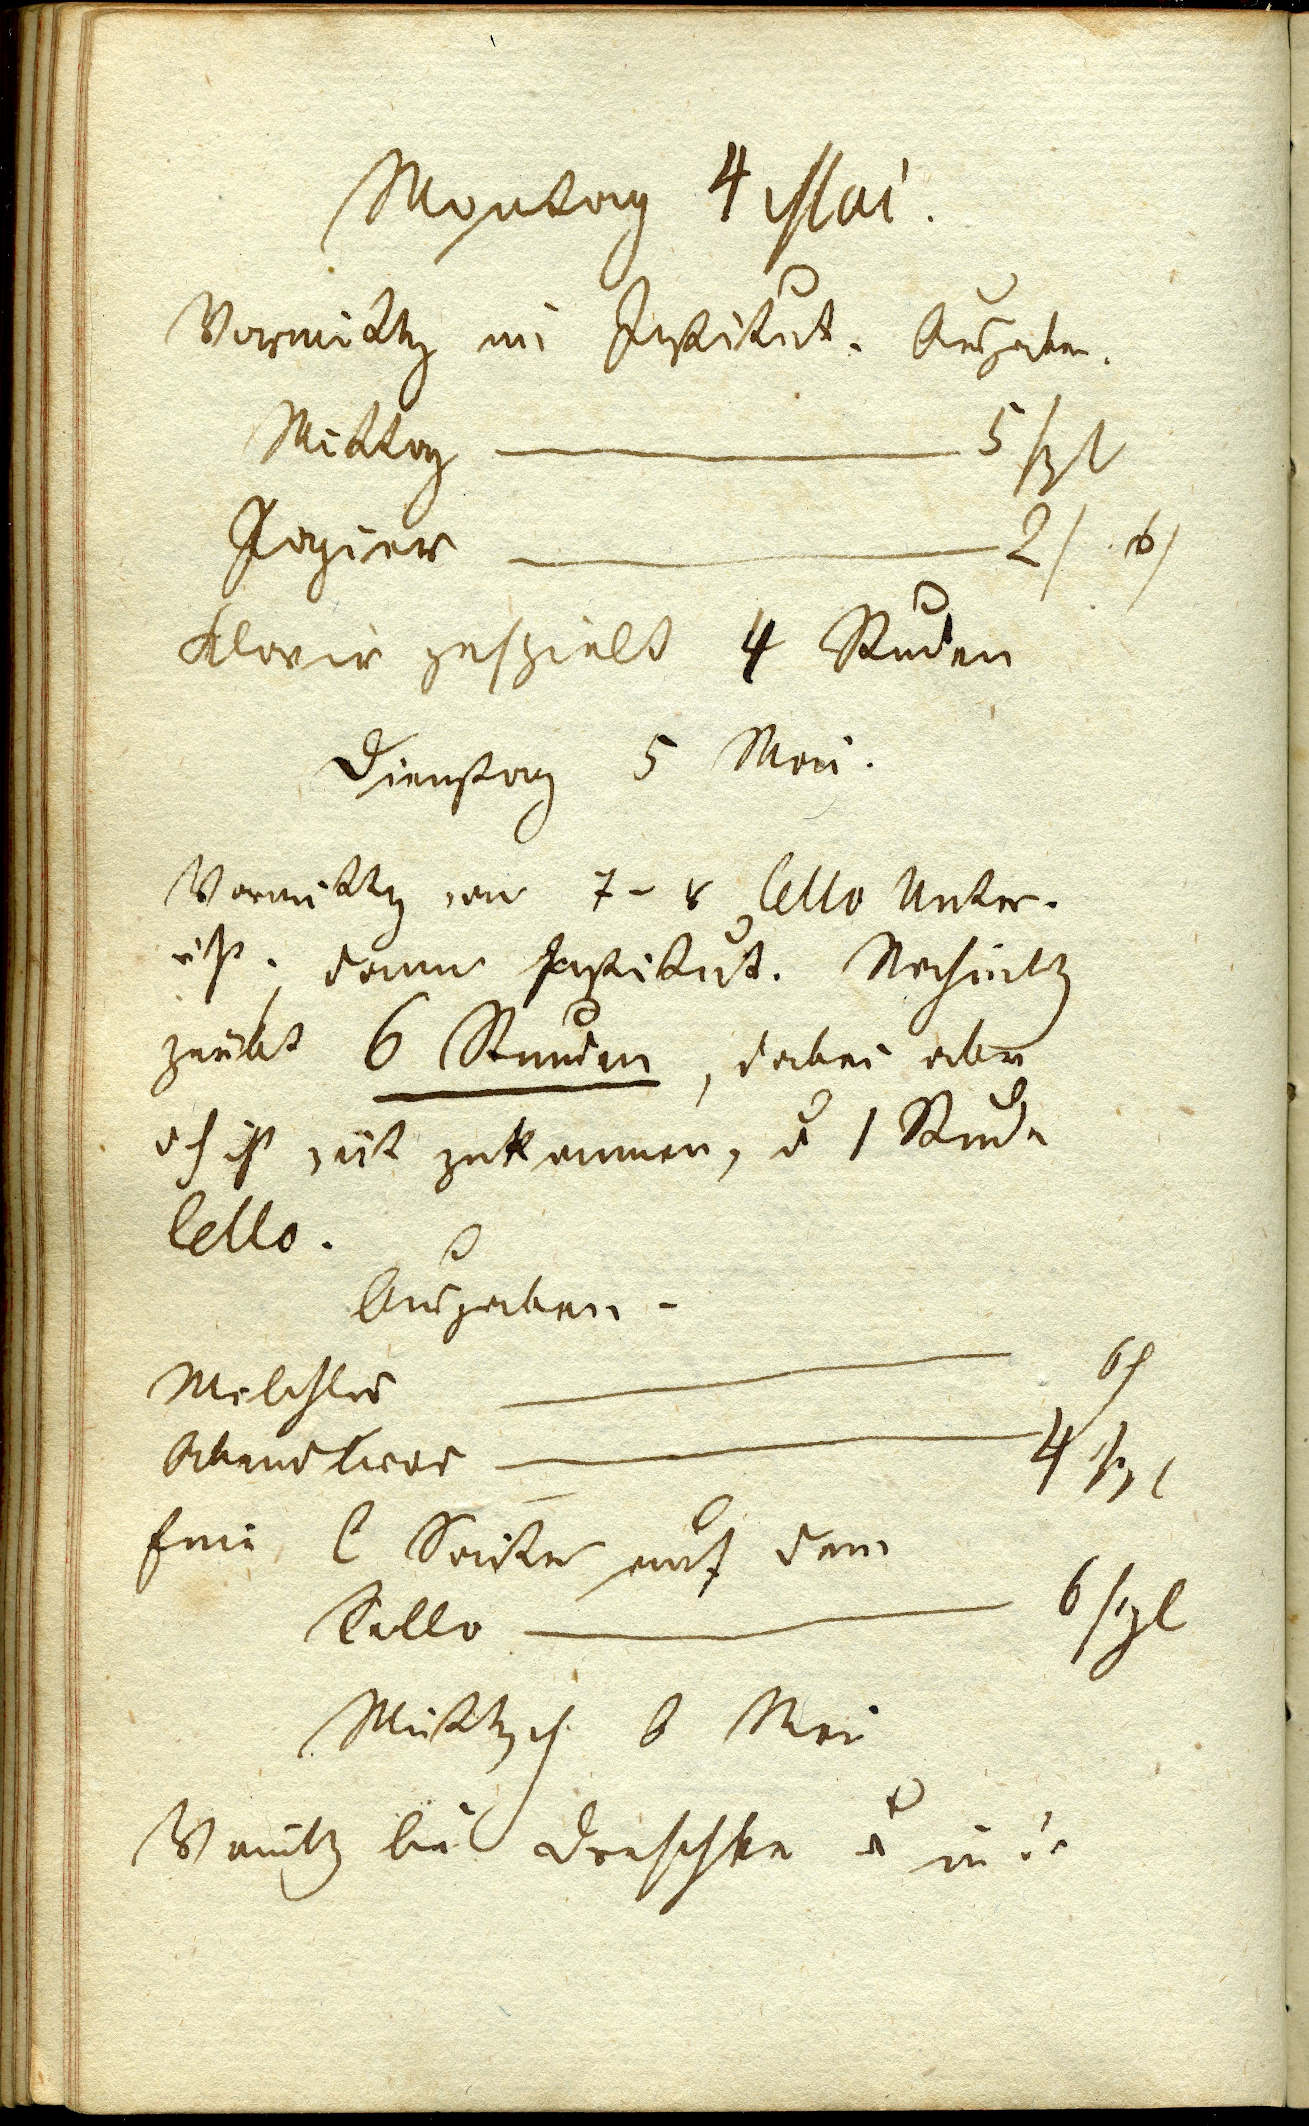 Montag 4 Mai.
Vormittg im Institut. Ausgaben.
Mittag 5 sgl
Papier 2/ 6/
Klavir gespielt 4 Studen
Dienstag 5 Mai.
Vormittg von 7-8 Cello Unter-
icht. dann Institut. Nachmittg
geübt 6 Stunden, dabei aber
nicht zukommen, u 1 Stude
Cello.
Ausgaben-
6
Abendbrod 4 sgl
Eine C Saite auf dem
Cello 6 sgl
Mittwoch 6 Mai
Vormittg bei u in